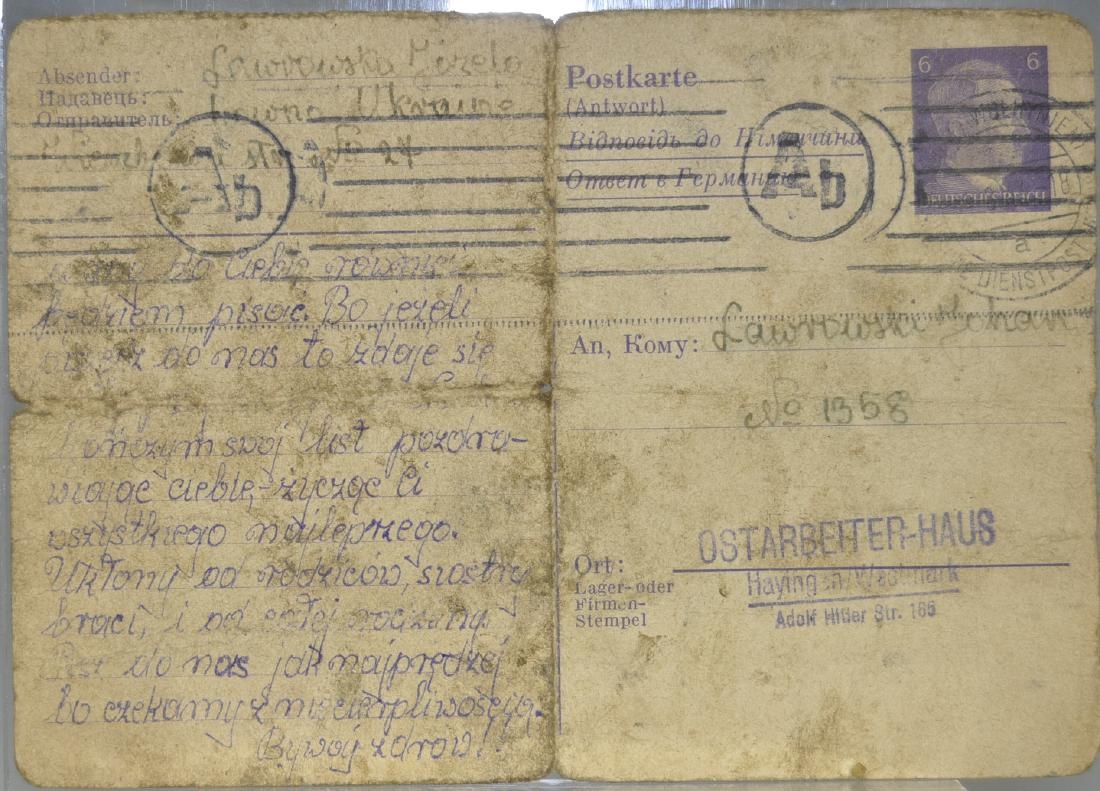 Absender: Ławrowska Gizela
Надавець: Ukraine
Отправитель:
str. No 27
do Ciebie również
będziem pisać. Bo jeżeli
do nas to zdaje się
Kończym swój list pozdra-
wiając ciebie, życząc Ci
wszystkiego najleprzego.
Ukłony od rodziców, siostry
braci, i od całej rodziny
Pisz do nas jak najprędzej
bo czekamy z niecierpliwością.
Bywaj zdrów!
Postkarte
(Antwort)
Відповідь до Німеччини
Ответ в Германию
6 6
DEUTSCHES REICH
Ab
Ab
DIENSTPOST
a
An, Кому: Ławrowski Johan
No 1358
OSTARBEITER-HAUS
Hayingen/Westmark
Adolf Hitler Str. 166
Ort:
Lager- oder
Firmen-
Stempel